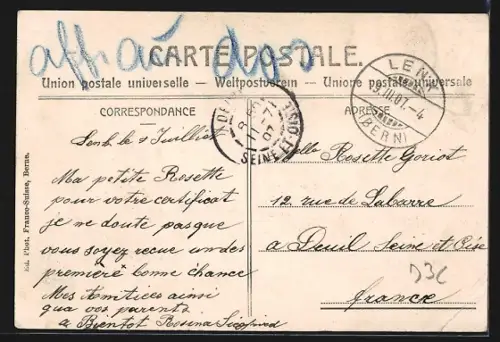 affrau dgs
CARTE POSTALE.
Union postale universelle — Weltpostverein — Unione postale universale
CORRESPONDANCE
ADRESSE
LENK
8.III.07.-4
(BERN)
SEINE ET OISE
Lenk le 8 Juillet
Ma petite Rosette
pour votre certificat
je ne doute pas que
vous soyez recue un des
première bonne chance
Mes Amitices ainsi
qua vos parents
a Bientot Rosina Siegfried
Mlle Rosette Goriot
12 rue de Labarre
a Deuil Seine et Oise
france
D3C
Ed. Phot. Franco-Suisse, Berne.